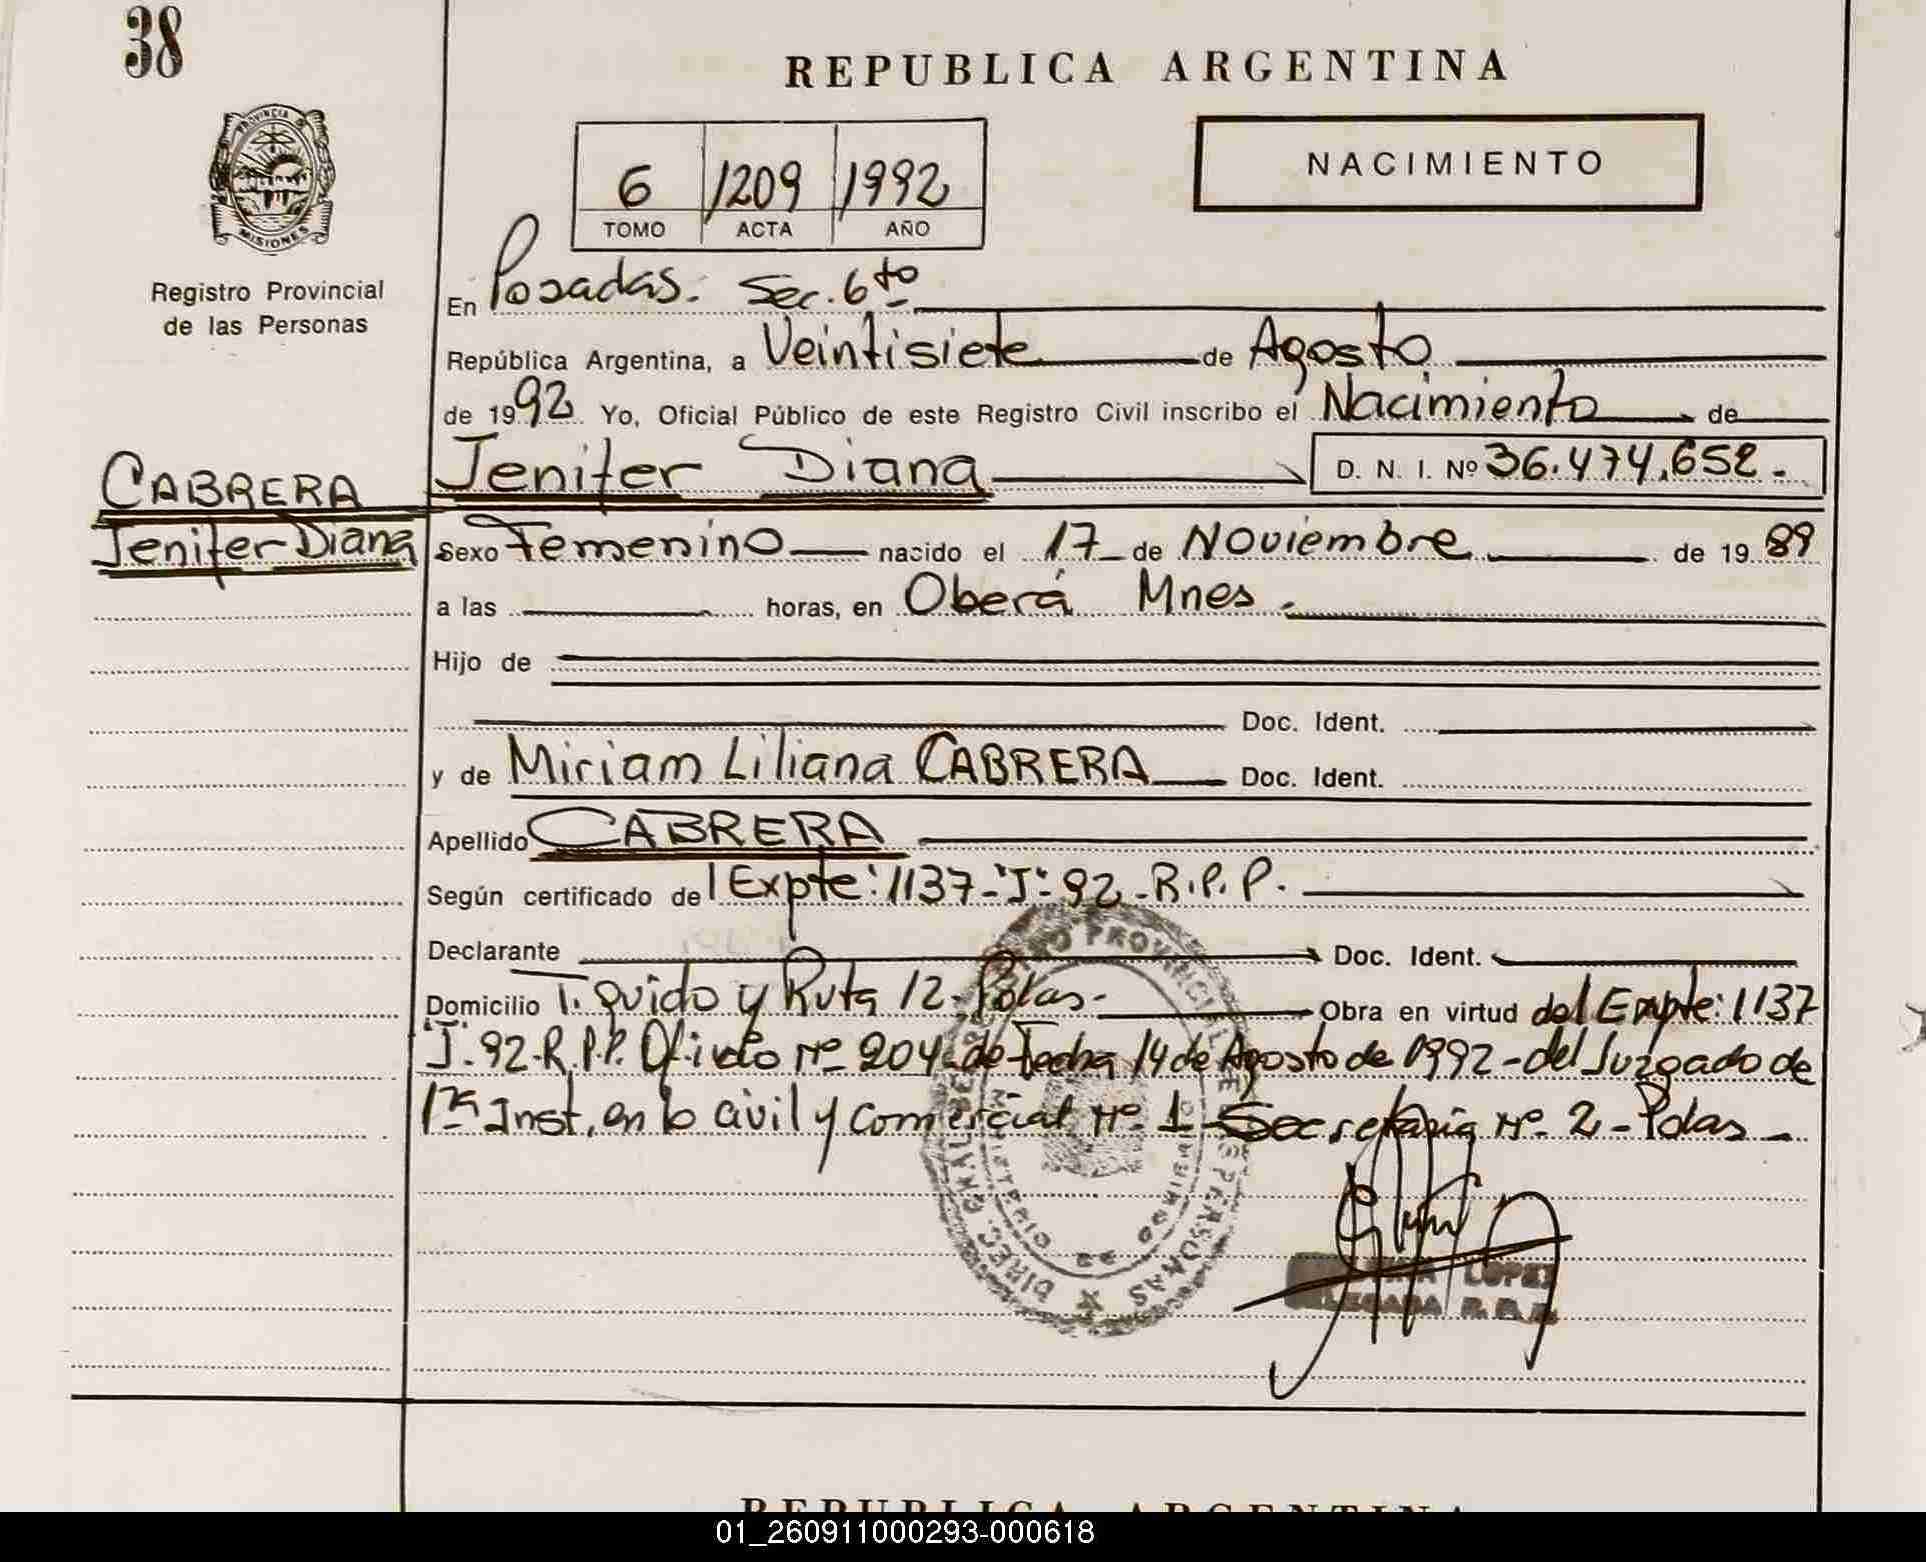 38
REPUBLICA ARGENTINA
NACIMIENTO
6 1209 1992
TOMO ACTA AÑO
PROVINCIA DE
MISIONES
Registro Provincial
de las Personas
En Posadas. Sec. 6to
República Argentina, a Veintisiete de Agosto
de 1992 Yo, Oficial Público de este Registro Civil inscribo el Nacimiento de
CABRERA
Jenifer Diana
Jenifer Diana D. N. I. Nº 36.474.652.-
Sexo Femenino nacido el 17 de Noviembre de 1989
a las horas, en Oberá Mnes.
Hijo de
Doc. Ident.
y de Miriam Liliana CABRERA Doc. Ident.
Apellido CABRERA
Según certificado de Expte: 1137-"J"-92-R.P.P.
Declarante Doc. Ident.
Domicilio y Ruta 12-Pdas- Obra en virtud del Expte: 1137
"J"-92-R.P.P. Oficio Nº 204 de Fecha 14 de Agosto de 1992-del Juzgado de
1ra Inst. en lo civil y comercial Nº 1-Secretaria Nº 2-Pdas-
PROVINCIAL DE PERSONAS
DIREC. GRAL.
LOPEZ
REPUBLICA ARGENTINA
01_260911000293-000618